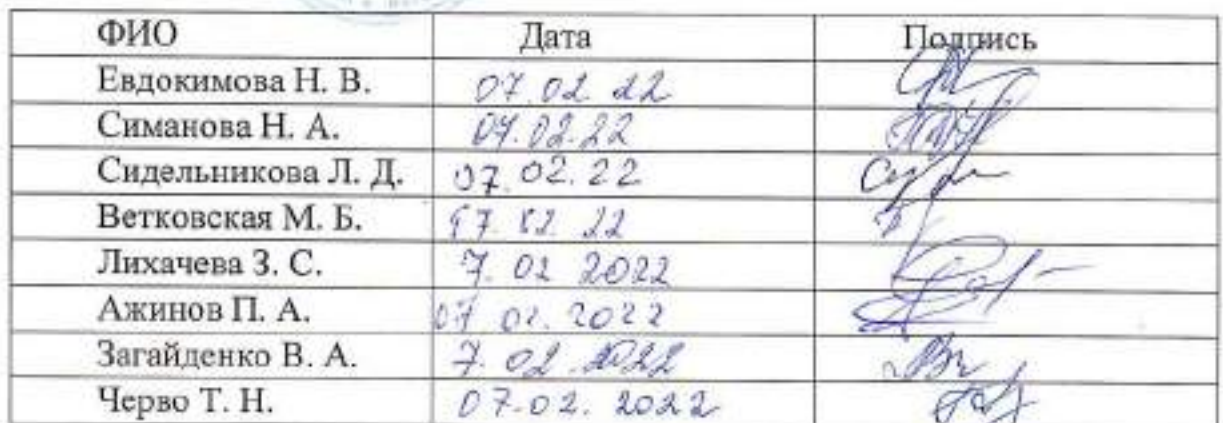 ФИО Дата Подпись
Евдокимова Н. В. 07.02.22
Симанова Н. А. 07.02.22
Сидельникова Л. Д. 07.02.22
Ветковская М. Б. 07.02.22
Лихачева З. С. 7.02 2022
Ажинов П. А. 07 02.2022
Загайденко В. А. 7.02.2022
Черво Т. Н. 07.02.2022